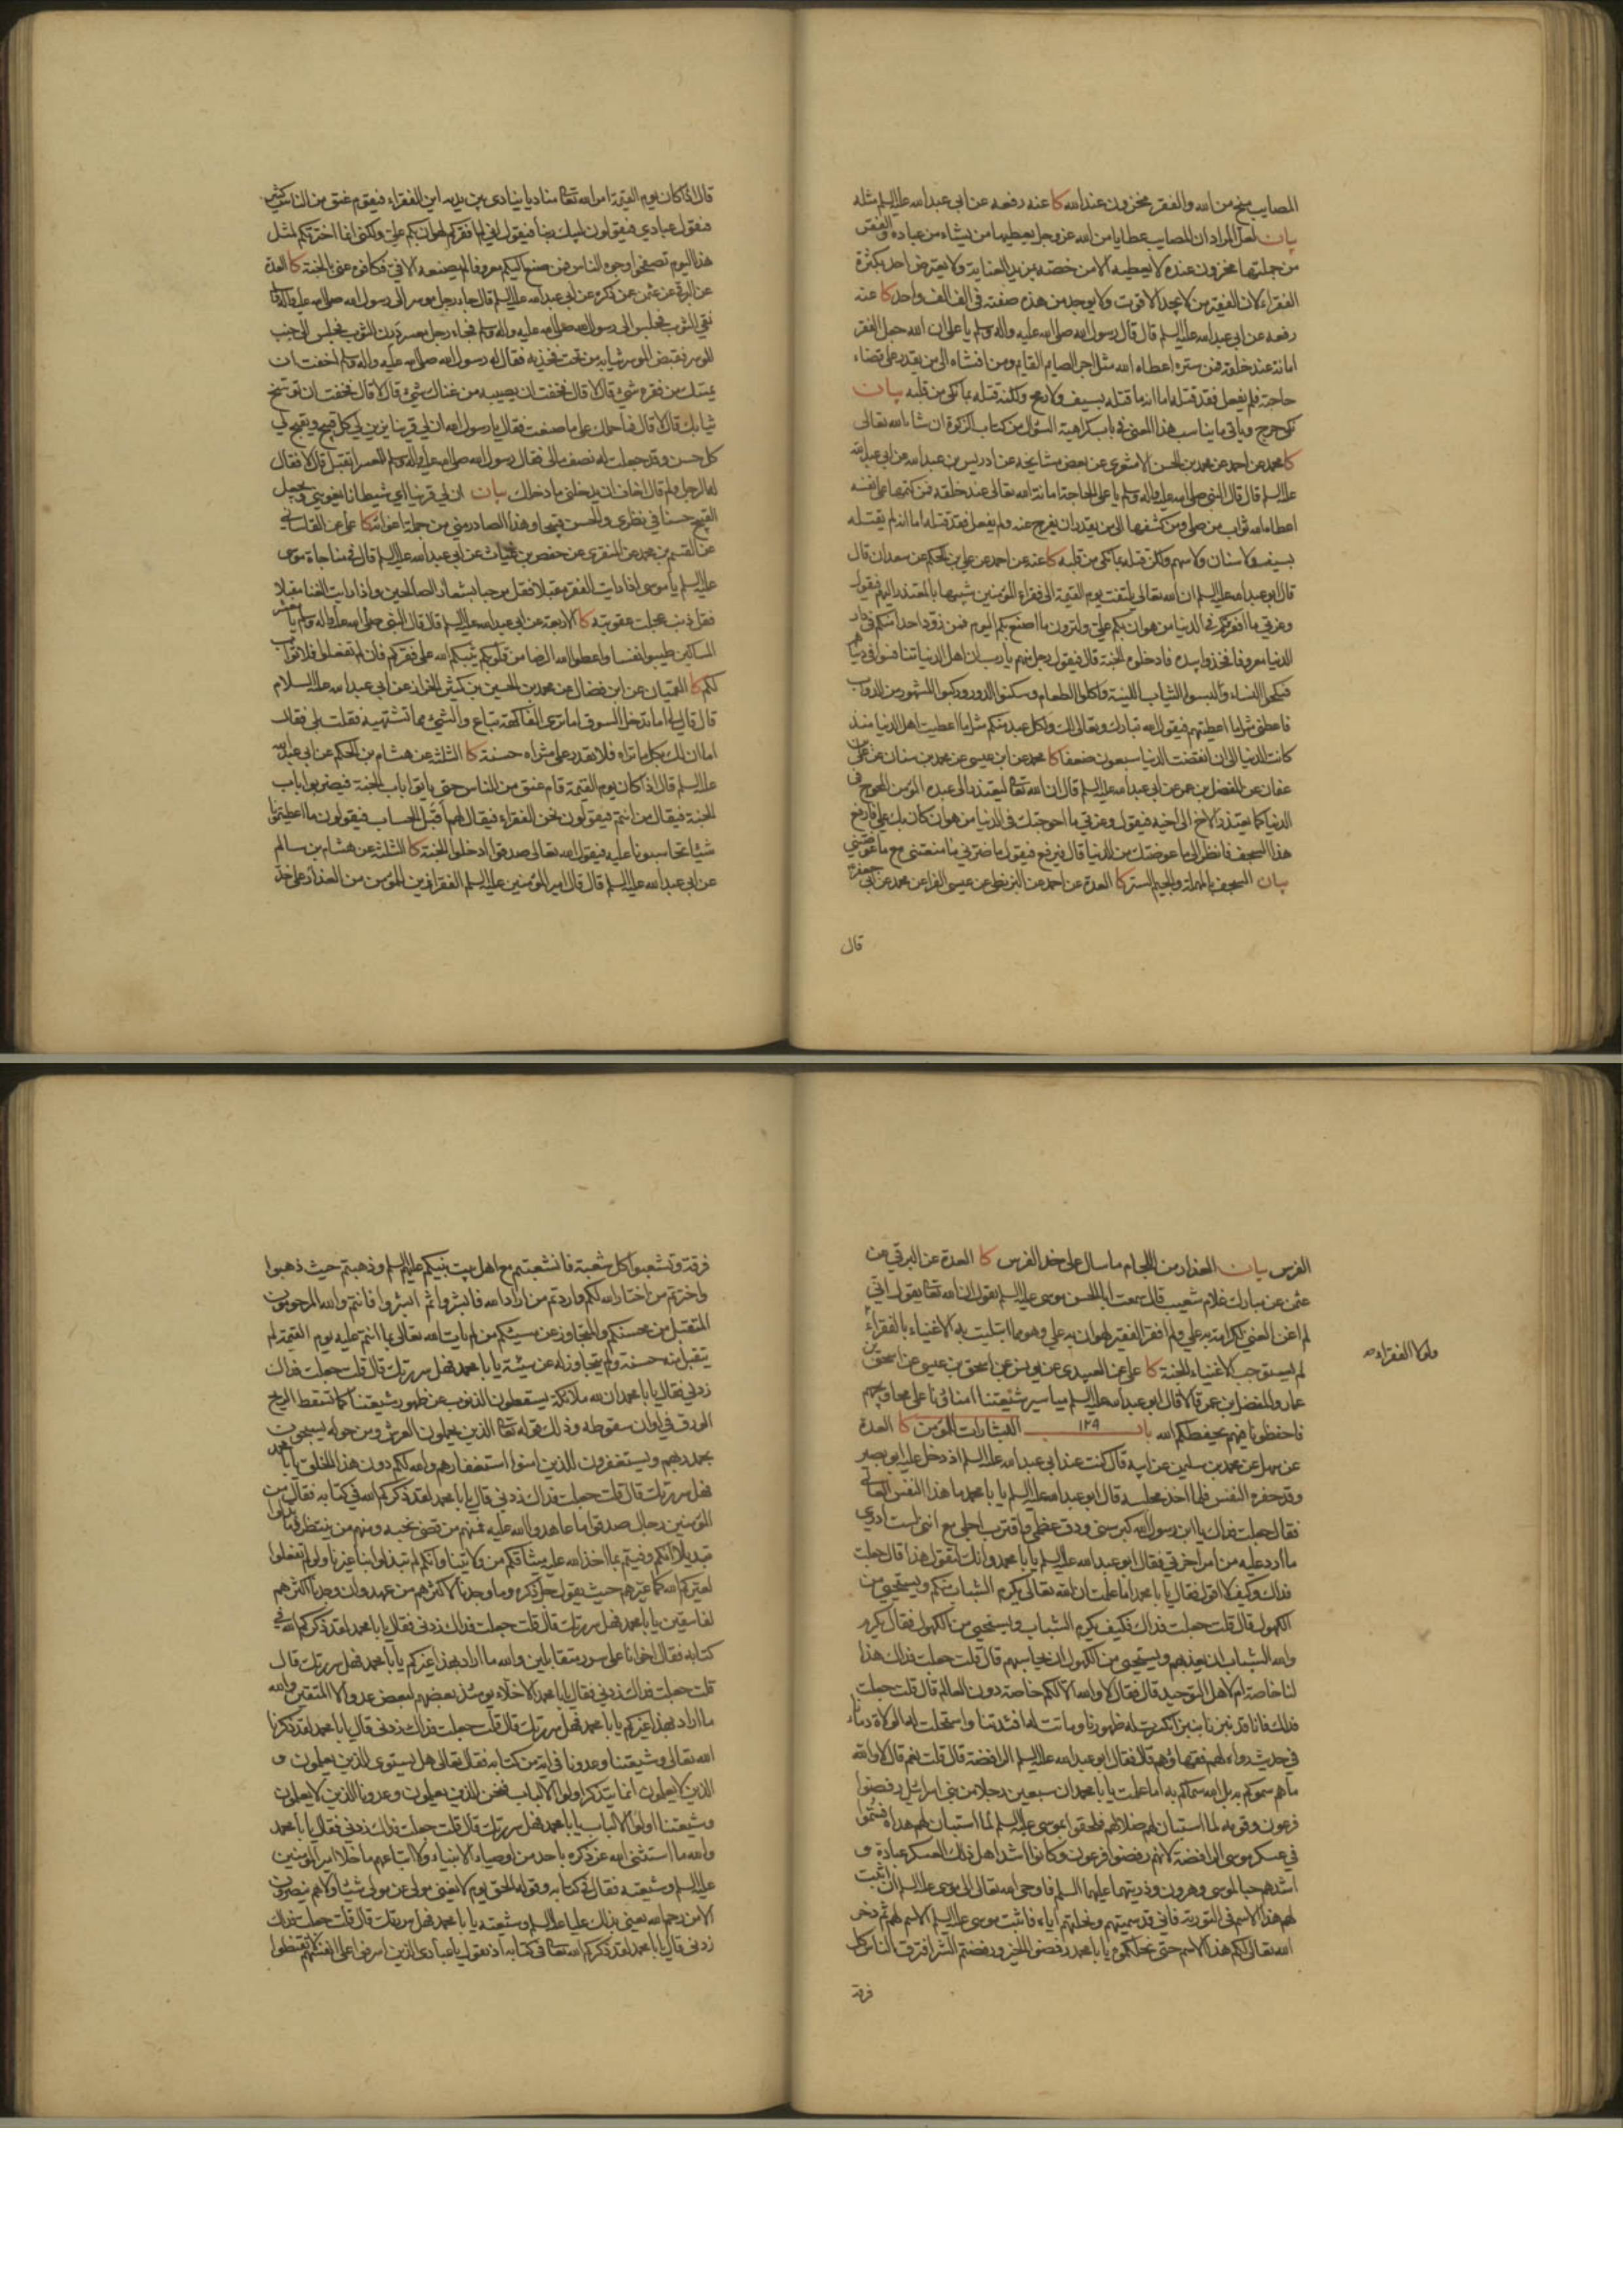 المصايب منح من الله والفقر مخزون عند الله كا عنه رفعه عن ابي عبد الله عليه السلم مثله
بيان لعل المراد ان المصايب عطايا من الله عز وجل يعطيها من يشاء من عباده والفقر
من جملتها مخزون عنده لا يعطيه الا من خصه بمزيد العناية ولا يعترض احد بكثرة
الفقراء لان الفقير من لا يجد الا قوت ولا يوجد من هذه صفته في الف الف واحد كا عنه
رفعه عن ابي عبد الله عليه السلم قال قال رسول الله صلى الله عليه واله وسلم يا علي ان الله جعل الفقر
امانة عند خلقه فمن ستره اعطاه الله مثل اجر الصايم القايم ومن افشاه الى من يقدر على قضاء
حاجته فلم يفعل فقد قتله اما انه ما قتله بسيف ولا رمح ولكنه قتله بما نكى من قلبه بيان
نكى جرح وياتي ما يناسب هذا المعنى في باب كراهية السؤل من كتاب الزكوة ان شاء الله تعالى
كا محمد عن احمد عن محمد بن الحسن الاشعري عن بعض مشايخه عن ادريس بن عبد الله عن ابي عبد الله
عليه السلم قال قال النبي صلى الله عليه واله وسلم يا علي الحاجة امانة الله تعالى عند خلقه فمن كتمها على نفسه
اعطاه الله ثواب من صلى ومن كشفها الى من يقدر ان يفرج عنه ولم يفعل فقد قتله اما انه لم يقتله
بسيف ولا سنان ولا سهم ولكن قتله بما نكى من قلبه كا عنه عن احمد عن علي بن الحكم عن سعدان قال
قال ابو عبد الله عليه السلم ان الله تعالى يلتفت يوم القيمة الى فقراء المؤمنين شبيها بالمعتذر اليهم فيقول
وعزتي ما افقرتكم في الدنيا من هوان بكم علي ولترون ما اصنع بكم اليوم فمن زود احدا منكم في دار
الدنيا معروفا فخذوا بيده فادخلوه الجنة قال فيقول رجل منهم يا رب ان اهل الدنيا تنافسوا في دنياهم
فنكحوا النساء ولبسوا الثياب اللينة واكلوا الطعام وسكنوا الدور وركبوا المشهور من الدواب
فاعطني مثل ما اعطيتهم فيقول الله تبارك وتعالى لك ولكل عبد منكم مثل ما اعطيت اهل الدنيا منذ
كانت الدنيا الى ان انقضت الدنيا سبعون ضعفا كا محمد عن ابن عيسى عن محمد بن سنان عن علي بن
عفان عن المفضل بن عمر عن ابي عبد الله عليه السلم قال ان الله تعا ليعتذر الى عبده المؤمن المحوج في
الدنيا كما يعتذر الاخ الى اخيه فيقول وعزتي ما احوجتك في الدنيا من هوان كان بك علي فارفع
هذا السجف فانظر الى ما عوضتك من الدنيا قال فيرفع فيقول ما ضرني ما منعتني مع ما عوضتني
بيان السجف بالمهملة والجيم الستر كا العدة عن احمد عن البزنطي عن عيسى الفراء عن محمد عن ابي جعفر
قال
قال اذا كان يوم القيمة امر الله تعا مناديا ينادي بين يديه اين الفقراء فيقوم عنق من الناس كثير
فيقول عبادي فيقولون لبيك ربنا فيقول اني لم افقركم لهوان بكم علي ولكني انما اخترتكم لمثل
هذا اليوم تصفحوا وجوه الناس فمن صنع اليكم معروفا لم يصنعه الا في فكافوه عني بالجنة كا العدة
عن البرقي عن عثمن عن ذكره عن ابي عبد الله عليه السلم قال جاء رجل موسر الى رسول الله صلى الله عليه واله وسلم
نقي الثوب فجلس الى رسول الله صلى الله عليه واله وسلم فجاء رجل معسر درن الثوب فجلس الى جنب
الموسر فقبض الموسر ثيابه من تحت فخذيه فقال له رسول الله صلى الله عليه واله وسلم اخفت ان
يمسك من فقره شيء قال لا قال فخفت ان يصيبه من غناك شيء قال لا قال فخفت ان توسخ
ثيابك قال لا قال فما حملك على ما صنعت فقال يا رسول الله ان لي قرينا يزين لي كل قبيح ويقبح لي
كل حسن وقد جعلت له نصف مالي فقال رسول الله صلى الله عليه واله وسلم للمعسر اتقبل قال لا فقال
له الرجل ولم قال اخاف ان يدخلني ما دخلك بيان ان لي قرينا اي شيطانا يغويني ويجعل
القبيح حسنا في نظري والحسن قبيحا وهذا الصادر مني من جملة اغوائه كا علي عن القاساني
عن القسم بن محمد عن المنقري عن حفص بن غياث عن ابي عبد الله عليه السلم قال في مناجاة موسى
عليه السلم يا موسى اذا رايت الفقر مقبلا فقل مرحبا بشعار الصالحين واذا رايت الغنا مقبلا
فقل ذنب عجلت عقوبته كا الاربعة عن ابي عبد الله عليه السلم قال قال النبي صلى الله عليه واله وسلم يا معشر
المساكين طيبوا نفسا واعطوا الله الرضا من قلوبكم يثبكم الله على فقركم فان لم تفعلوا فلا ثواب
لكم كا القميان عن ابن فضال عن محمد بن الحسين بن كثير الخزاز عن ابي عبد الله عليه السلام
قال قال لي اما تدخل السوق اما ترى الفاكهة تباع والشيء مما تشتهيه فقلت بلى فقال
اما ان لك بكل ما تراه فلا تقدر على شراه حسنة كا الثلثة عن هشام بن الحكم عن ابي عبد الله
عليه السلم قال اذا كان يوم القيمة قام عنق من الناس حتى ياتوا باب الجنة فيضربوا باب
الجنة فيقال من انتم فيقولون نحن الفقراء فيقال لهم أقبل الحساب فيقولون ما اعطيتمونا
شيئا تحاسبونا عليه فيقول الله تعالى صدقوا ادخلوا الجنة كا الثلثة عن هشام بن سالم
عن ابي عبد الله عليه السلم قال قال امير المؤمنين عليه السلم الفقر ازين للمؤمن من العذار على خد
الفرس بيان العذار من اللجام ما سال على خد الفرس كا العدة عن البرقي عن
عثمن عن مبارك غلام شعيب قال سمعت ابا الحسن موسى عليه السلم يقول ان الله تعا يقول اني
لم اغن الغني لكرامة به علي ولم افقر الفقير لهوان به علي وهو مما ابتليت به الاغنياء بالفقراء
ولولا الفقراء صح
لم يستوجب الاغنياء الجنة كا علي عن العبيدي عن يونس عن اسحق بن عيسى عن اسحق بن
عمار والمفضل بن عمر قالا قال ابو عبد الله عليه السلم مياسير شيعتنا امناؤنا على محاويجهم
فاحفظونا فيهم يحفظكم الله باب ١٢٩ البشارات للمؤمن كا العدة
عن سهل عن محمد بن سليمن عن ابيه قال كنت عند ابي عبد الله عليه السلم اذ دخل عليه ابو بصير
وقد حفزه النفس فلما اخذ مجلسه قال ابو عبد الله عليه السلم يا با محمد ما هذا النفس العالي
فقال جعلت فداك يا ابن رسول الله كبر سني ودق عظمي واقترب اجلي مع انني لست ادري
ما ارد عليه من امر اخرتي فقال ابو عبد الله عليه السلم يا با محمد وانك لتقول هذا قال جعلت
فداك وكيف لا اقول فقال يا با محمد اما علمت ان الله تعالى يكرم الشباب منكم ويستحيي من
الكهول قال قلت جعلت فداك فكيف يكرم الشباب ويستحيي من الكهول فقال يكرم
والله الشباب ان يعذبهم ويستحيي من الكهول ان يحاسبهم قال قلت جعلت فداك هذا
لنا خاصة ام لاهل التوحيد قال فقال لا والله الا لكم خاصة دون العالم قال قلت جعلت
فداك فانا قد نبزنا بنبز انكسرت له ظهورنا وماتت له افئدتنا واستحلت له الولاة دماءنا
في حديث رواه لهم فقهاؤهم قال فقال ابو عبد الله عليه السلم الرافضة قال قلت نعم قال لا والله
ما هم سموكم به بل الله سماكم به اما علمت يا با محمد ان سبعين رجلا من بني اسرائيل رفضوا
فرعون وقومه لما استبان لهم ضلالهم فلحقوا بموسى عليه السلم لما استبان لهم هداه فسموا
في عسكر موسى الرافضة لانهم رفضوا فرعون وكانوا اشد اهل ذلك العسكر عبادة و
اشدهم حبا لموسى وهرون وذريتهما عليهما السلم فاوحى الله تعالى الى موسى عليه السلم ان اثبت
لهم هذا الاسم في التورية فاني قد سميتهم به ونحلتهم اياه فاثبت موسى عليه السلم الاسم لهم ثم ذخر
الله تعالى لكم هذا الاسم حتى نحلكموه يا با محمد رفضوا الخير ورفضتم الشر افترق الناس كل
فرقة
فرقة وتشعبوا كل شعبة فانشعبتم مع اهل بيت نبيكم عليهم السلم وذهبتم حيث ذهبوا
واخترتم من اختار الله لكم واردتم من اراد الله فابشروا ثم ابشروا فانتم والله المرحومون
المتقبل من محسنكم والمتجاوز عن مسيئكم من لم يات الله تعالى بما انتم عليه يوم القيمة لم
يتقبل منه حسنة ولم يتجاوز له عن سيئة يا با محمد فهل سررتك قال قلت جعلت فداك
زدني فقال يا با محمد ان لله ملائكة يسقطون الذنوب عن ظهور شيعتنا كما تسقط الريح
الورق في اوان سقوطه وذلك قوله تعا الذين يحملون العرش ومن حوله يسبحون
بحمد ربهم ويستغفرون للذين امنوا استغفارهم والله لكم دون هذا الخلق يا با محمد
فهل سررتك قال قلت جعلت فداك زدني قال يا با محمد لقد ذكركم الله في كتابه فقال من
المؤمنين رجال صدقوا ما عاهدوا الله عليه فمنهم من قضى نحبه ومنهم من ينتظر وما بدلوا
تبديلا انكم وفيتم بما اخذ الله عليه ميثاقكم من ولايتنا وانكم لم تبدلوا بنا غيرنا ولو لم تفعلوا
لعيركم الله كما عيرهم حيث يقول جل ذكره وما وجدنا لاكثرهم من عهد وان وجدنا اكثرهم
لفاسقين يا با محمد فهل سررتك قال قلت جعلت فداك زدني فقال يا با محمد لقد ذكركم الله في
كتابه فقال اخوانا على سرر متقابلين والله ما اراد بهذا غيركم يا با محمد فهل سررتك قال
قلت جعلت فداك زدني فقال يا با محمد الاخلاء يومئذ بعضهم لبعض عدو الا المتقين والله
ما اراد بهذا غيركم يا با محمد فهل سررتك قال قلت جعلت فداك زدني قال يا با محمد لقد ذكرنا
الله تعالى وشيعتنا وعدونا في اية من كتابه فقال تعالى هل يستوي الذين يعلمون و
الذين لا يعلمون انما يتذكر اولوا الالباب فنحن الذين يعلمون وعدونا الذين لا يعلمون
وشيعتنا اولوا الالباب يا با محمد فهل سررتك قال قلت جعلت فداك زدني فقال يا با محمد
والله ما استثنى الله عز ذكره باحد من اوصياء الانبياء ولا اتباعهم ما خلا امير المؤمنين
عليه السلم وشيعته فقال في كتابه وقوله الحق يوم لا يغني مولى عن مولى شيئا ولا هم ينصرون
الا من رحم الله يعني بذلك عليا عليه السلم وشيعته يا با محمد فهل سررتك قال قلت جعلت فداك
زدني قال يا با محمد لقد ذكركم الله تعا في كتابه اذ يقول يا عبادي الذين اسرفوا على انفسهم لا تقنطوا